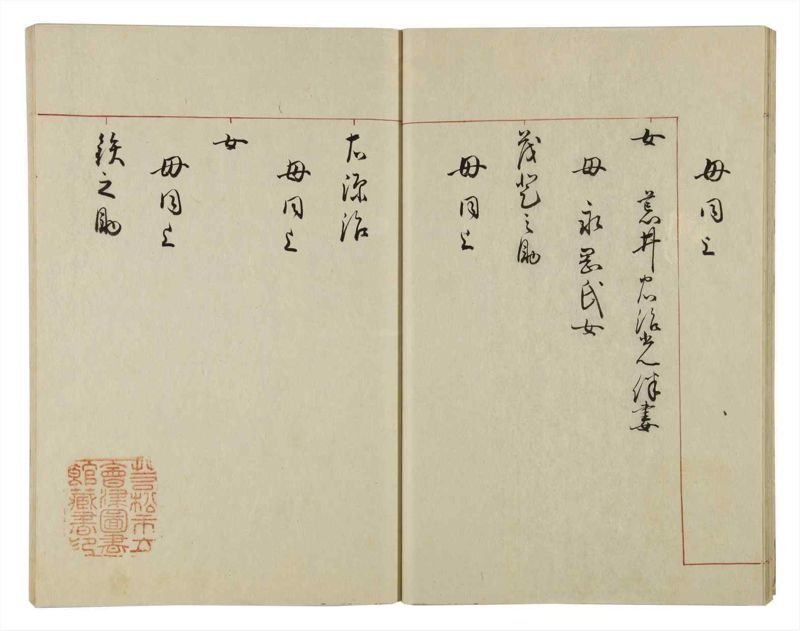 母同上
女 荒井忠治光倅妻
母 永岡氏女
茂登之助
母同上
右源治
母同上
女
母同上
鉄之助
若松市立
會津圖書
館藏書印